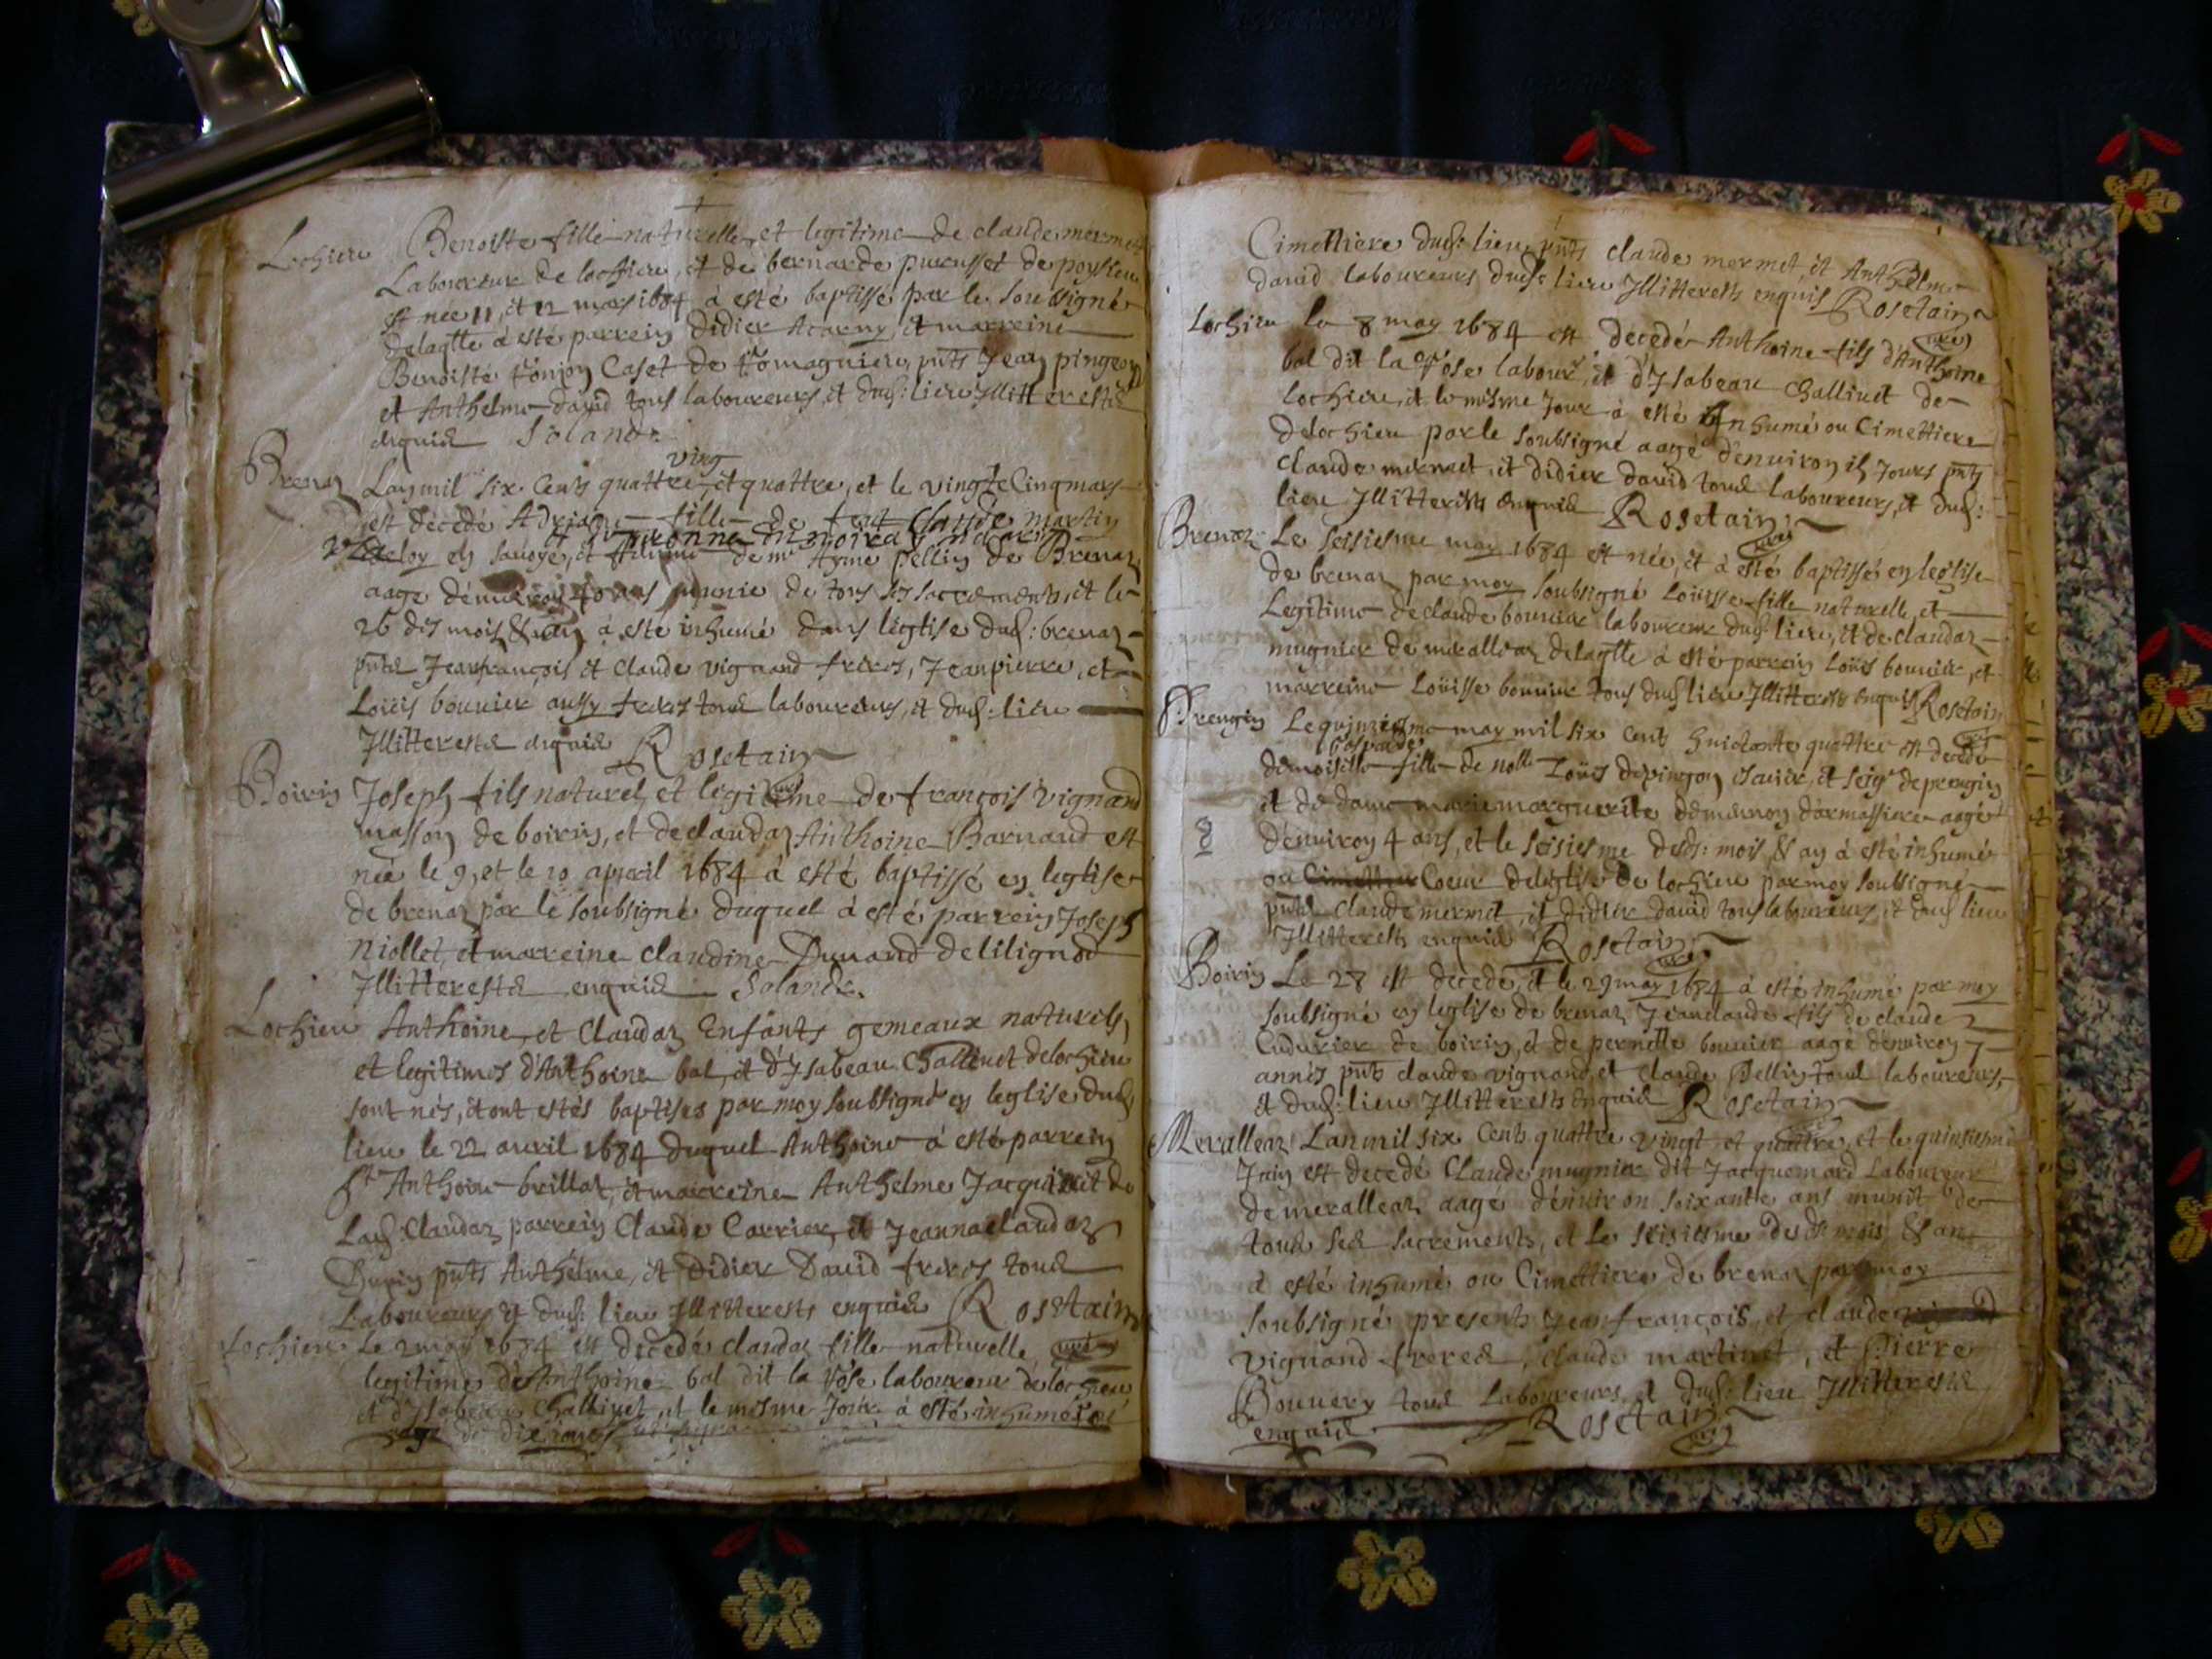 Lochieu Benoiste fille naturelle, et legitime de claude mermet
Laboureur de lochieu, et de bernarde purusset de poysieu
est nee 11, et 12 mars 1684 à esté baptissé par le soubsigné
delaqlle à esté parrein didier Acarny, et marreine
Benoiste tonjon Caset de romagnieu, pnts Jean pingeon
et Anthelme david tous laboureurs, et dud: lieu Illitterestz
enquis Solande
ving
Brenaz Lan mil six Cents quattre, et quattre, et le vingt Cinq mars
est décédé Adriane fille de feu Claude martin
de loy en sauoye, et femme de mr Ayme pellin de Brenaz
aage d'enuiron 40 ans munie de tous ses sacrements, et le
26 des mois & an à esté inhumé dans l'eglise dud: brenaz
pnts Jean françois et Claude vignand freres, Jean pierre, et
Loüis bouuier aussy freres tous laboureurs, et dud: lieu
Illitterestz enquis Rosetain
Boirin Joseph fils naturel, et legitime de françois vignand
masson de boirin, et de claudaz Anthoine Barnaud est
née le 9, et le 10 apuril 1684 à esté baptissé en leglise
de brenaz par le soubsigné duquel à esté parrein Joseph
Niollet, et marreine claudine Dunand de lilignod
Illitterestz enquis Solande.
Lochieu Anthoine, et Claudaz Enfants gemeaux naturels,
et legitimes d'Anthoine bal, et d'Isabeau Challiuet de lochieu
sont nés, et ont estés baptises par moy soubsigné en leglise dud:
lieu le 22 auril 1684 duquel Anthoine à esté parrein
sr Anthoine brillat, et marreine Anthelme Jacquinet de
Lad: Claudaz parrein Claude Carrier, et Jeanna claudaz
Durin pnts Anthelme, et Didier Dauid freres tous
Laboureurs et dud: lieu Illitterests enquis Rosetain
Lochieu Le 2 may 1684 est decedé claudaz fille naturelle
legitime d'Anthoine bal dit la Rose laboureur de lochieu
et d'Isabeau Challiuet, et le mesme Jour à esté inhumé au
aage de dix jours
Cimettiere dud: lieu pnts claude mermet, et Anthelme
dauid laboureurs dud: lieu Illitterests enquis Rosetain
Lochieu le 8 may 1684 est decedé Anthoine fils d'Anthoine
bal dit la Rose labourr, et d'Isabeau Challiuet de
Lochieu, et le mesme Jour à esté Inhumé ou Cimettiere
de lochieu par le soubsigné aagé d'enuiron 15 Jours pnts
claude mermet, et didier dauid tous laboureurs, et dud:
lieu Illitterests enquis Rosetain
Brenaz Le seisiesme may 1684 est née, et à esté baptissé en leglise
de brenaz par moy soubsigné Loüisse fille naturelle, et
Legitime de claude bouuier laboureur dud: lieu, et de claudaz
mugnier de meralleaz delaqlle à esté parrein Loüis bouuier, et
marreine Loüisse bouuier tous dud: lieu Illitterests enquis Rosetain
Prengin Le quinziesme may mil six cents huictante quattre est decedé
demoiselle fille de noble Loüis depingon escuier, et seigr de prengin
et de dame marie marguerite demernon d'armassiere aagée
8 d'enuiron 4 ans, et le seisiesme desd: mois, & an à esté inhumé
ou Cimettiere Coeur de leglise de lochieu par moy soubsigné
pnts Claude mermet, et didier dauid tous laboureurs, et dud: lieu
Illitterests enquis Rosetain
Boirin Le 28 est decedé, et le 29 may 1684 à esté inhumé par moy
soubsigné en leglise de brenaz Jean claude fils de claude
Cudurier de boirin, et de pernette bouuier aagé d'enuiron 7
annés pnts claude vignand, et claude pellin tous laboureurs,
et dud: lieu Illitterests enquis Rosetain
Meralleaz Lan mil six Cents quattre vingt et quattre, et le quinsiesme
Juin est decedé Claude mugnier dit Jacquemard Laboureur
de meralleaz aagé d'enuiron soixante ans munit de
tous ses sacrements, et le seisiesme desd: mois & an
à esté inhumé ou Cimettiere de brenaz par moy
soubsigné presents Jean françois, et claude
vignand freres, claude martinet, et Pierre
Bouuery tous Laboureurs, et dud: lieu Illitterestz
enquis Rosetain